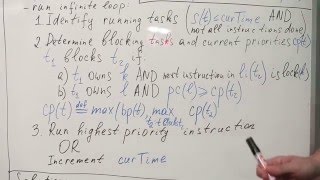 - run infinite loop:
1. Identify running tasks (s(t) ≤ curTime AND
not all instructions done)
2. Determine blocking tasks and current priorities cp(t)
t₁ blocks t₂ if:
a) t₁ owns l AND next instruction in l(t₂) is lock(l)
b) t₁ owns l AND pc(l) > cp(t₂)
cp(t) def= max(bp(t), max cp(t₂)
3. Run highest priority instruction
OR
Increment curTime